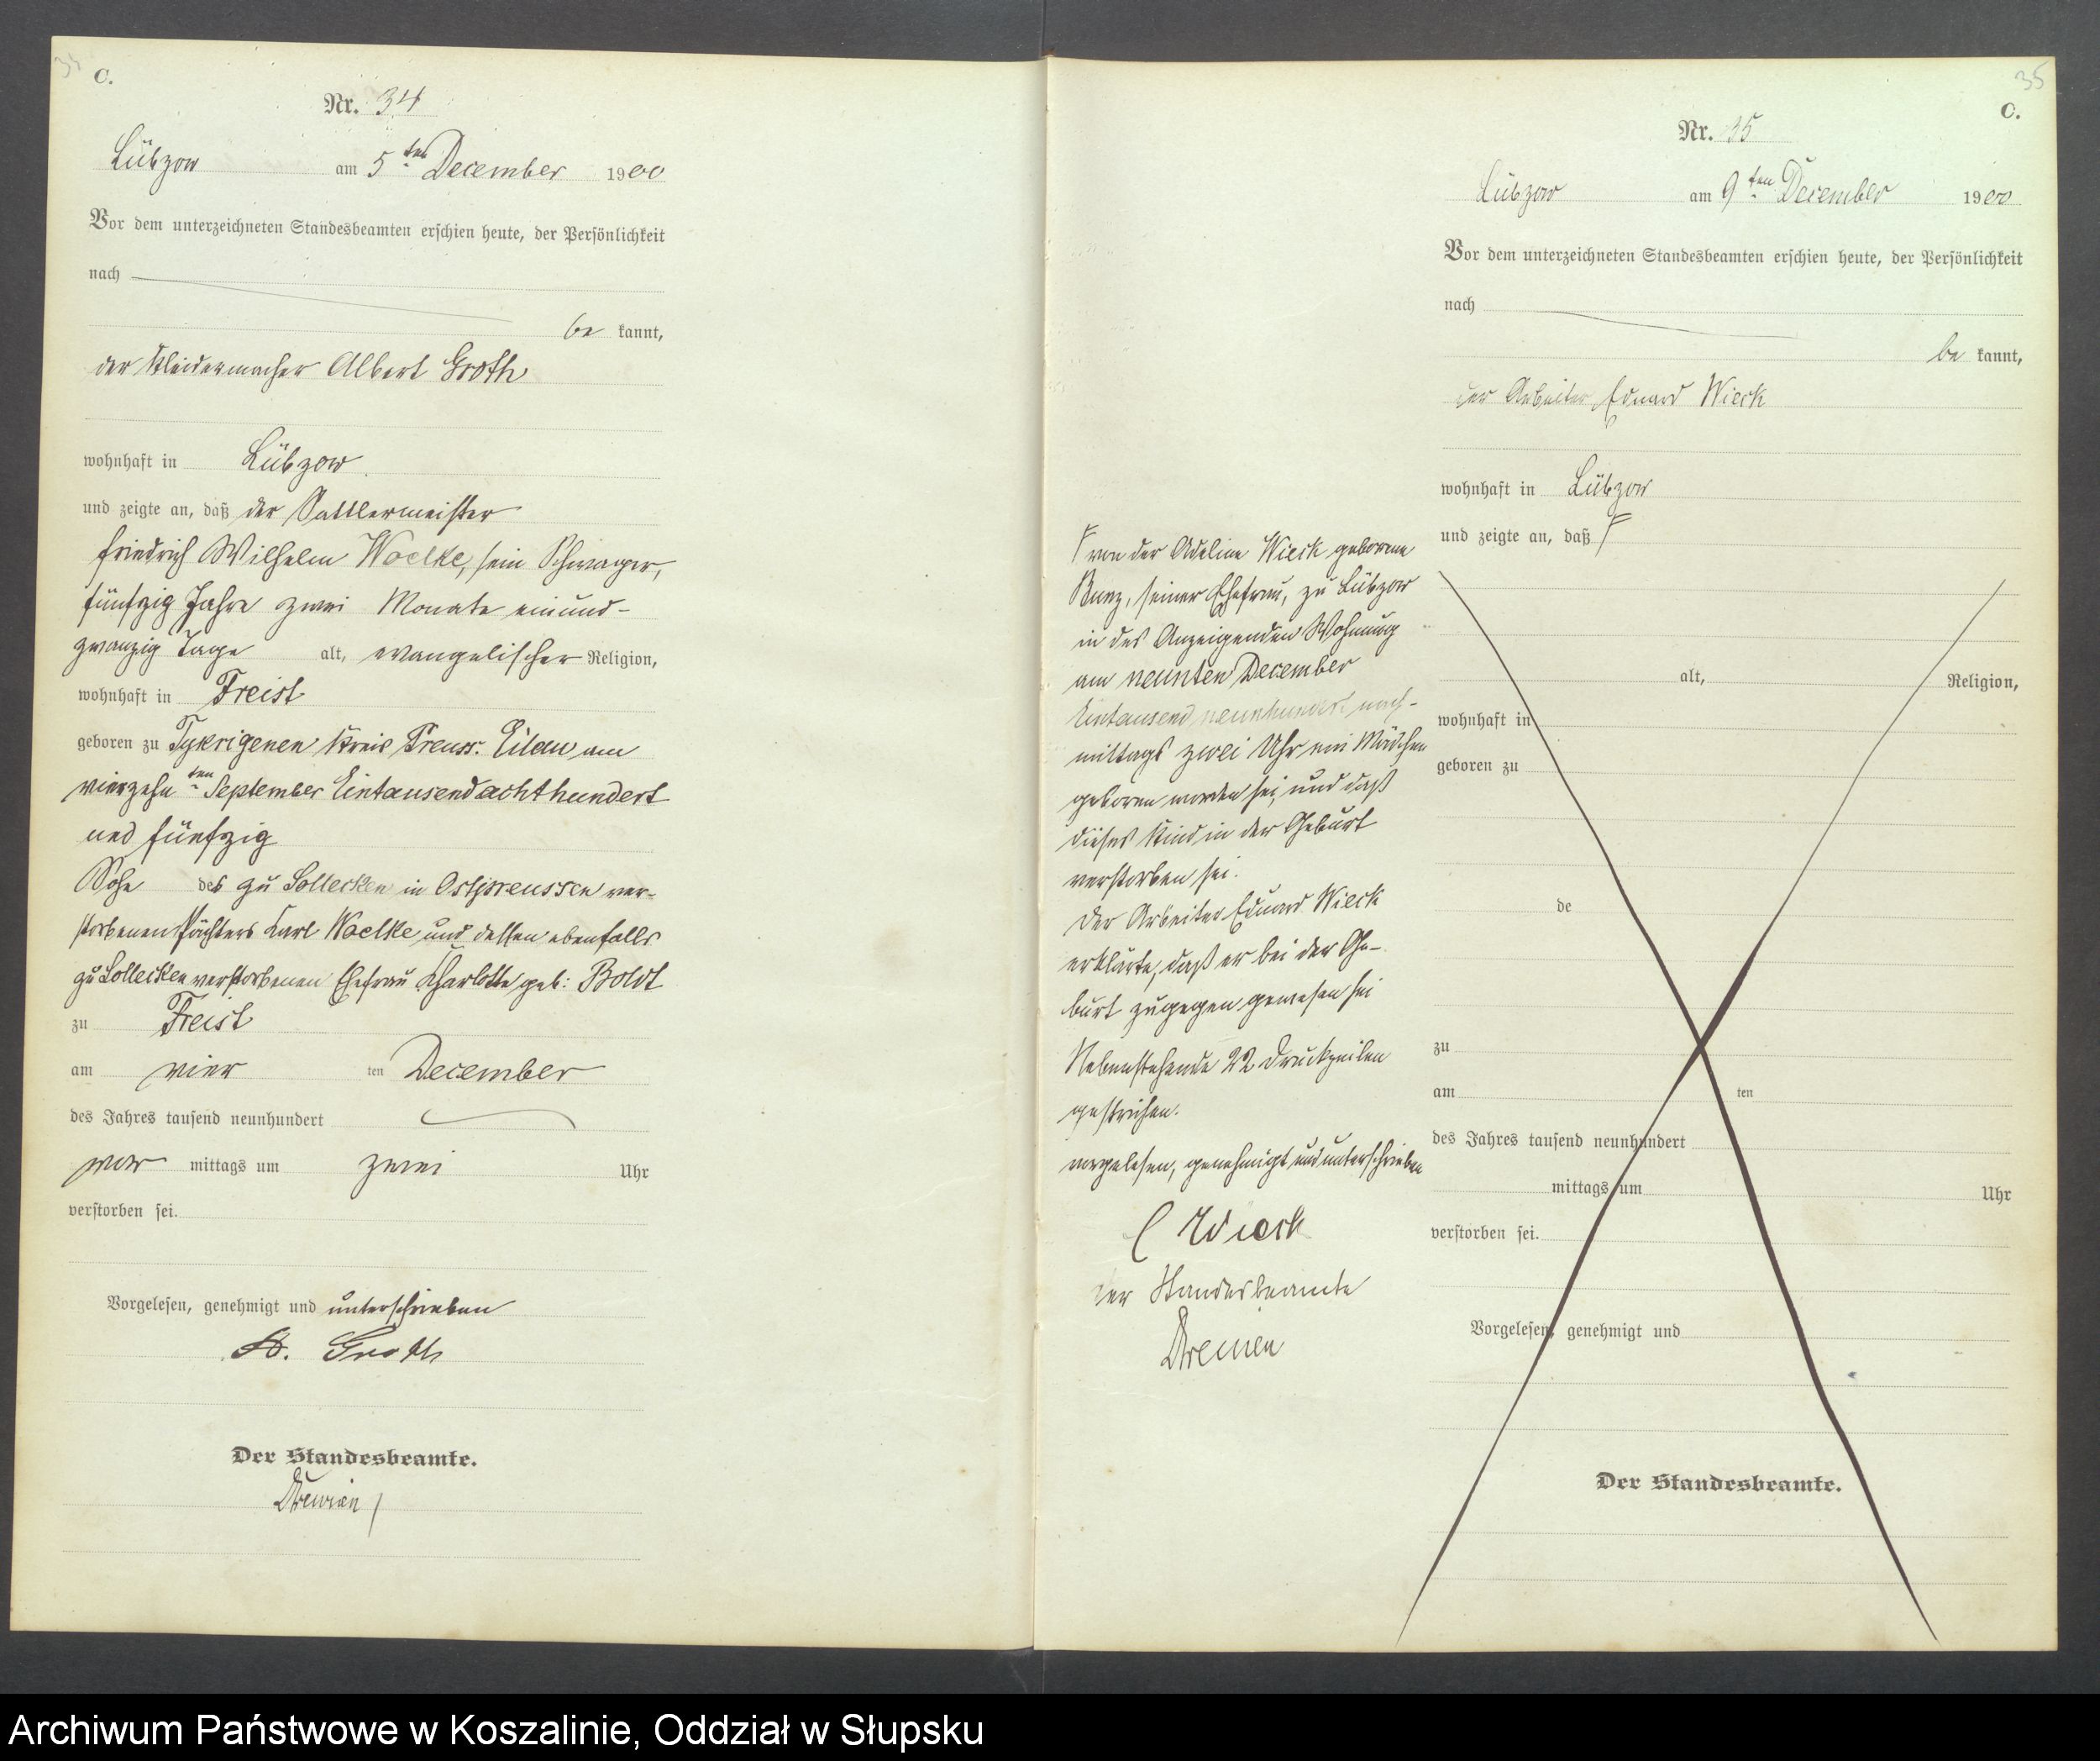 34
C.
Nr. 34
Lübzow am 5ten December 1900
Vor dem unterzeichneten Standesbeamten erschien heute, der Persönlichkeit
nach
be kannt,
der Kleidermacher Albert Groth
wohnhaft in Lübzow
und zeigte an, daß der Sattlermeister
Friedrich Wilhelm Woelke, sein Schwager,
fünfzig Jahre zwei Monate einund-
zwanzig Tage alt, evangelischer Religion,
wohnhaft in Freist
geboren zu Kreis Preuss. Eilau am
vierzehnten September Eintausendachthundert
und fünfzig
Sohn des zu Sollecken in Ostpreussen ver-
storbenen Pächters Karl Woelke und dessen ebenfalls
zu Sollecken verstorbenen Ehefrau Charlotte geb: Boldt
zu Freist
am vier ten December
des Jahres tausend neunhundert
vor mittags um zwei Uhr
verstorben sei.
Vorgelesen, genehmigt und unterschrieben
A. Groth
Der Standesbeamte.
35
C.
Nr. 35
Lübzow am 9ten December 1900
Vor dem unterzeichneten Standesbeamten erschien heute, der Persönlichkeit
nach
be kannt,
der Arbeiter Eduard Wieck
wohnhaft in Lübzow
und zeigte an, daß
alt, Religion,
wohnhaft in
geboren zu
de
zu
am ten
des Jahres tausend neunhundert
mittags um Uhr
verstorben sei.
Vorgelesen, genehmigt und
Der Standesbeamte.
von der Adeline Wieck geborene
seiner Ehefrau, zu Lübzow
in des Anzeigenden Wohnung
am neunten December
Eintausend neunhundert nach-
mittags zwei Uhr ein Mädchen
geboren worden sei, und daß
dieses Kind in der Geburt
verstorben sei.
Der Arbeiter Eduard Wieck
erklärte, daß er bei der Ge-
burt zugegen gewesen sei
Nebenstehende 22 Druckzeilen
gestrichen.
vorgelesen, genehmigt und unterschrieben
Wieck
der Standesbeamte
Archiwum Państwowe w Koszalinie, Oddział w Słupsku